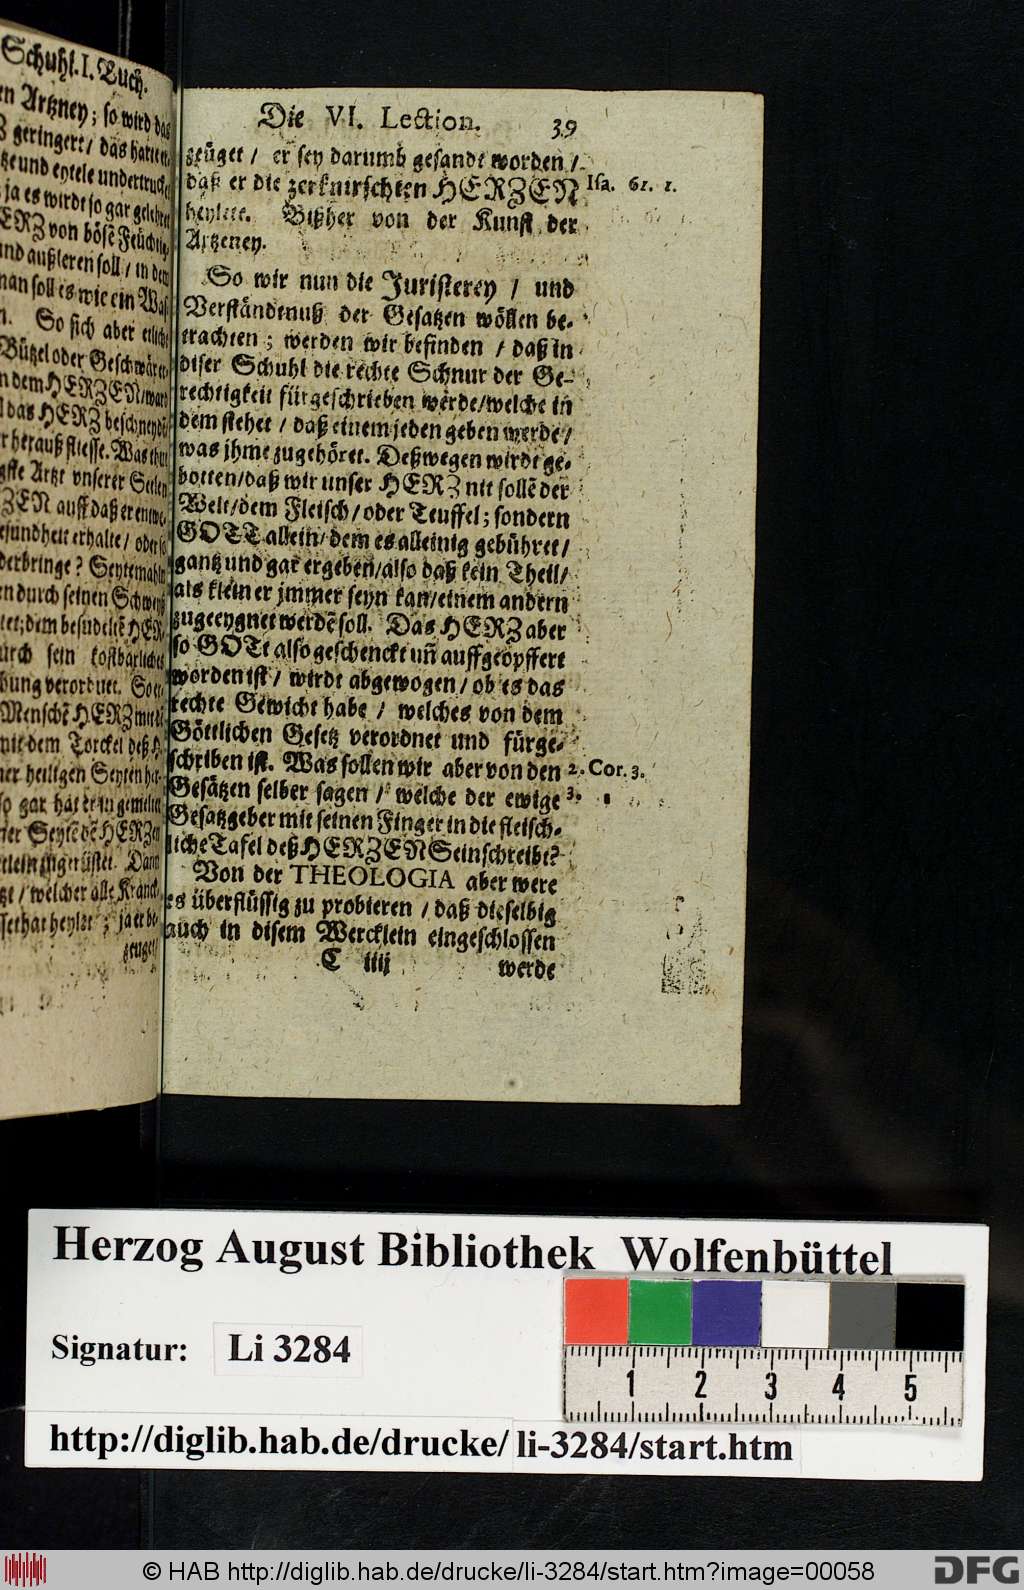 Schuhl. I. Buch.
en Artzney; so wird das
Z geringert / das harte er-
tze und eytele undertrucket
ja es wirdt so gar gelehret
ERZ von böse Feüchtig-
und außleren soll / in dem
man soll es wie ein Was-
n. So sich aber etliche
Bützel oder Geschwärer
n dem HERZEN / ward
l das HERZ beschneyde
r herauß fliesse. Was thut
gste Artzt vnserer Seelen
ZEN auff daß er entwe-
esundheit erhalte / oder so
derbringe? Seytemahln
n durch seinen Schweyß
tet; dem besudelte HER-
urch sein kostbarliches
bung verordnet. So er-
Mensche HERZ mit
mit dem Torckel deß H
ner heiligen Seyten her-
so gar hat er in gemelter
ner Seyte de HERZen
tlein zugerüstet. Dann
tzt / welcher alle Kranck-
sethat heylet; ja er be-
zeuget
Die VI. Lection. 39
zeüget / er sey darumb gesandt worden /
daß er die zerknirschten HERZEN
heylete. Bißher von der Kunst der
Artzeney.
Isa. 61. 1.
So wir nun die Juristerey / und
Verständtnuß der Gesatzen wöllen be-
trachten; werden wir befinden / daß in
diser Schuhl die rechte Schnur der Ge-
rechtigkeit fürgeschrieben werde / welche in
dem stehet / daß einem jeden geben werde /
was jhme zugehöret. Deßwegen wirdt ge-
botten / daß wir unser HERZ nit sollē der
Welt / dem Fleisch / oder Teuffel; sondern
GOTT allein / dem es alleinig gebühret /
gantz und gar ergeben / also daß kein Theil /
als klein er jmmer seyn kan / einem andern
zugeeygnet werdē soll. Das HERZ aber
so GOTt also geschenckt uñ auffgeopffert
worden ist / wirdt abgewogen / ob es das
rechte Gewicht habe / welches von dem
Göttlichen Gesetz verordnet und fürge-
schriben ist. Was sollen wir aber von den
Gesätzen selber sagen / welche der ewige
Gesatzgeber mit seinen Finger in die fleisch-
liche Tafel deß HERZENS einschreibt?
2. Cor. 3.
3.
Von der THEOLOGIA aber were
es überflüssig zu probieren / daß dieselbig
auch in disem Wercklein eingeschlossen
C iiij werde
Herzog August Bibliothek Wolfenbüttel
Signatur: Li 3284
1 2 3 4 5
http://diglib.hab.de/drucke/ li-3284/start.htm
© HAB http://diglib.hab.de/drucke/li-3284/start.htm?image=00058
DFG